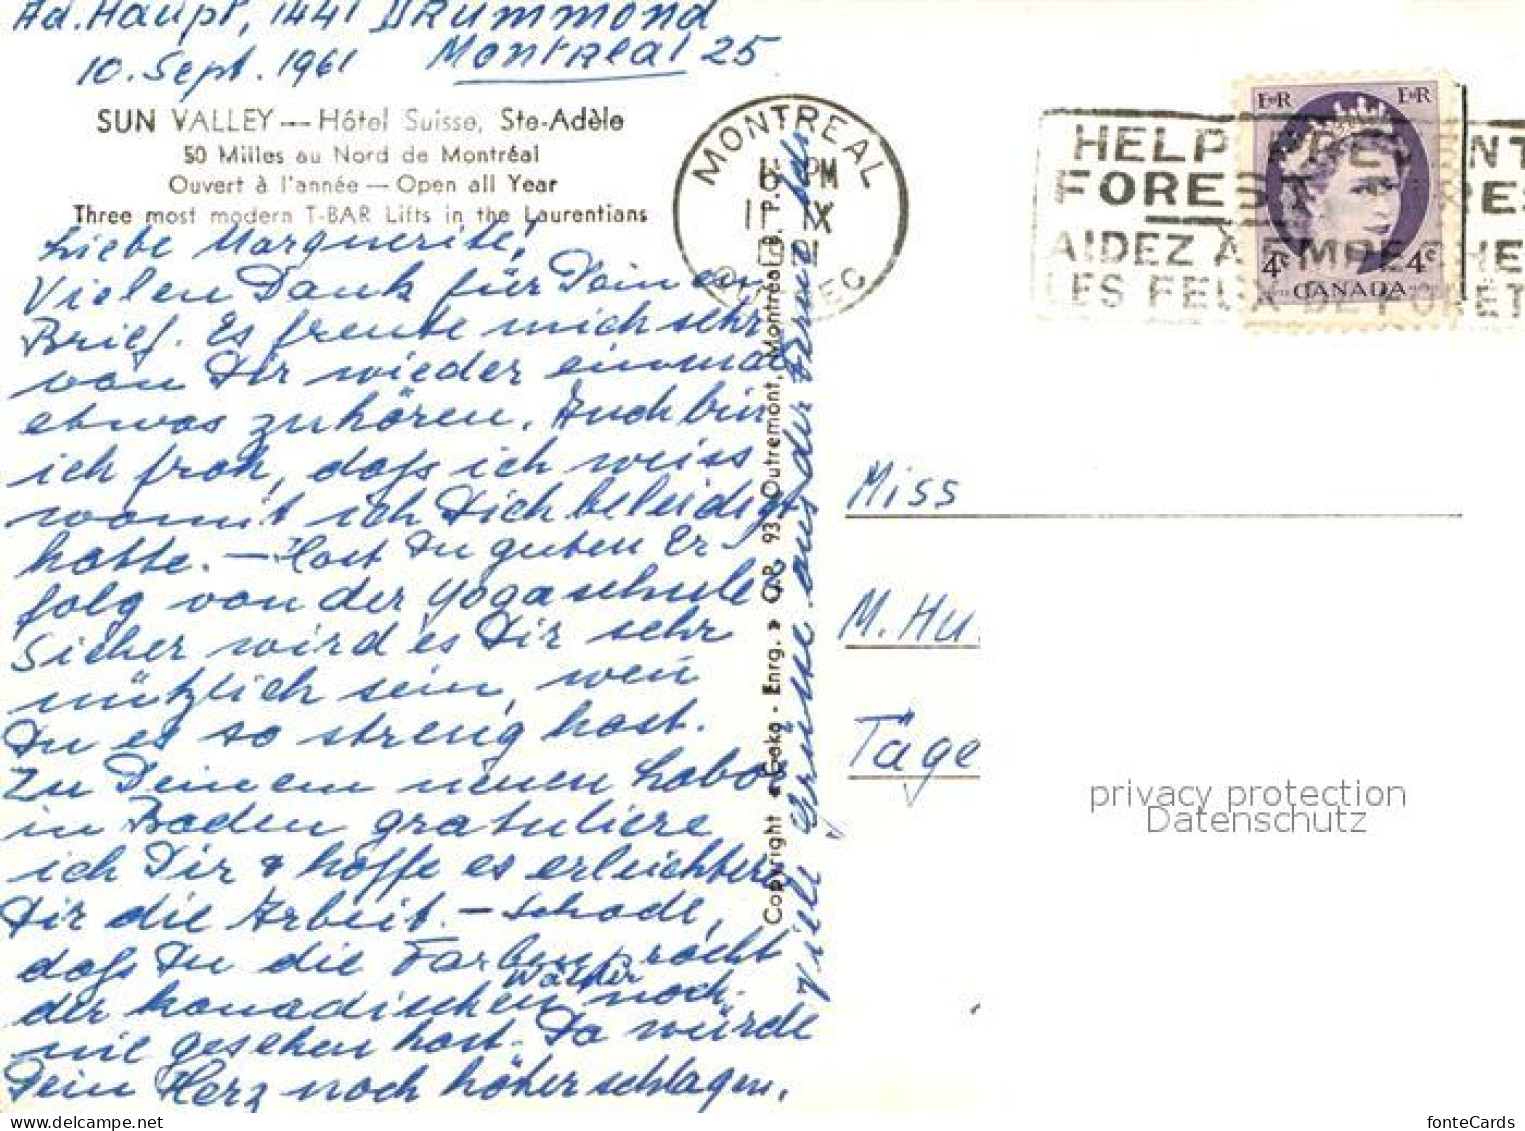 Ad. Haupt, 1441 Drummond
10. Sept. 1961 Montreal 25
SUN VALLEY -- Hôtel Suisse, Ste-Adèle
50 Milles au Nord de Montréal
Ouvert à l'année — Open all Year
Three most modern T-BAR Lifts in the Laurentians
Liebe Marguerite!
Vielen Dank für Deinen
Brief. Es freute mich sehr
von Dir wieder einmal
etwas zu hören. Auch bin
ich froh, dass ich weiss
womit ich Dich beleidigt
hatte. — Hast Du guten Er-
folg von der Yogaschule
Sicher wird es Dir sehr
nützlich sein, wen
Du es so streng hast.
Zu Deinem neuen Labor
in Baden gratuliere
ich Dir & hoffe es erleichtere
Dir die Arbeit. — Schade,
dass Du die Farbenpracht
der kanadischen Wälder noch
nie gesehen hast. Da würde
Dein Herz noch höher schlagen.
Viele Grüsse aus der Ferne
Copyright « Goko - Enrg. » C.P. 93, Outremont, Montréal 8, P.Q.
MONTREAL
PM
11 IX
QUEBEC
HELP PREVENT
FOREST FIRES
AIDEZ A EMPECHER
LES FEUX DE FORET
E R E R
4c 4c
CANADA
Miss
M. Hu
Täge
privacy protection
Datenschutz
fonteCards